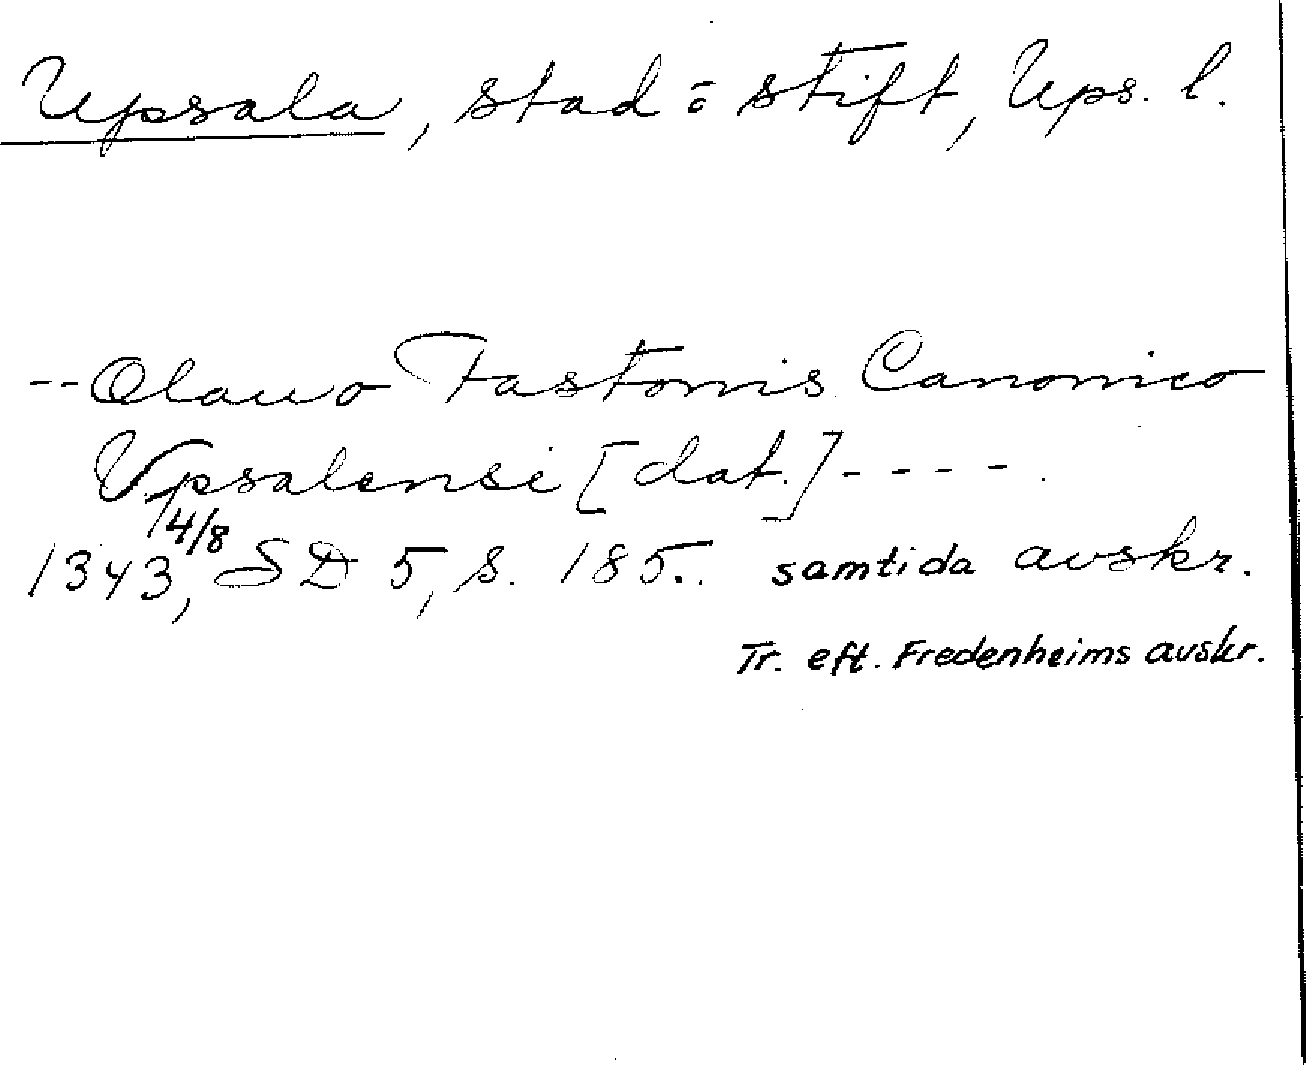 Upsala, stad o stift, Ups. l.
-- Olauo Fastonis Canonico
Vpsalensi [dat.] - - - -
1343, 4/8 SD 5, s. 185. samtida avskr.
Tr. eft. Fredenheims avskr.